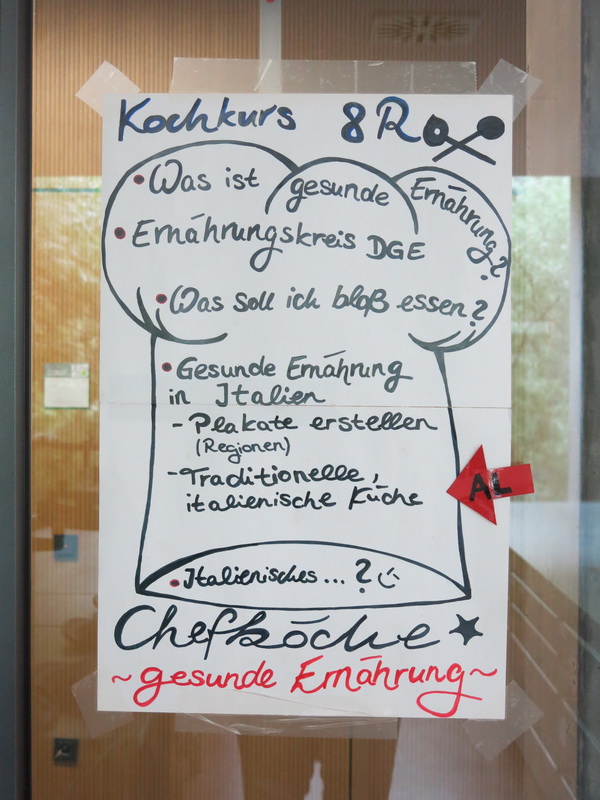 Kochkurs 8R
• Was ist gesunde Ernährung?
• Ernährungskreis DGE
• Was soll ich bloß essen?
• Gesunde Ernährung
in Italien
- Plakate erstellen
(Regionen)
- Traditionelle,
italienische Küche
AL
• Italienisches... ?
Chefköche
~gesunde Ernährung~